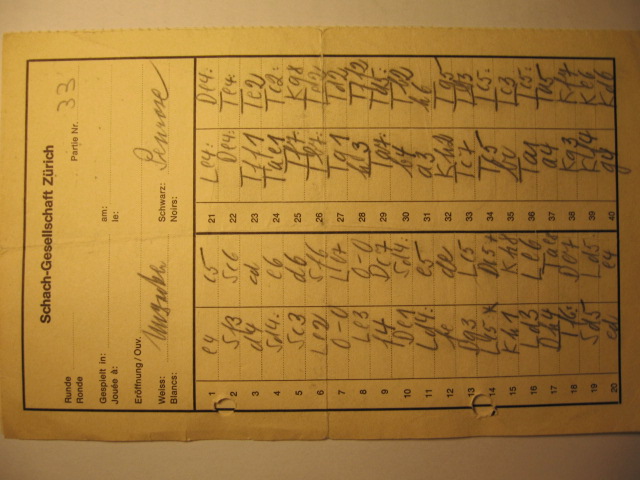 Schach-Gesellschaft Zürich
Runde
Ronde
Partie Nr. 33
Gespielt in:
Jouée à:
am:
le:
Eröffnung / Ouv.
Weiss:
Blancs:
Schwarz: Penrose
Noirs:
1 e4 c5
2 Sf3 Sc6
3 d4 cd
4 Sd4: e6
5 Sc3 d6
6 Le2 Sf6
7 0-0 Le7
8 Le3 0-0
9 f4 Dc7
10 De1 Sd4:
11 Ld4: e5
12 fe de
13 Dg3 Lc5
14 Lc5: Dc5:
15 Kh1 Kh8
16 Ld3 Le6
17 Dh4 Tac8
18 Tf6: De7
19 Sd5 Ld5
20 ed e4
21 Le4: De4:
22 De4: Te4:
23 Tff1 Tc2
24 Tae1 Tc2:
25 Tf7: Kg8
26 Tb7: Td2:
27 Tg1 Td2
28 h3
29 Ta7: Td5:
30 b4
31 a3 h6
32 Kh2 Tg5
33 Tc7 Td3
34 Tc5 Tc5:
35 bc Tc3
36 Ta1 Tc5:
37 a4 Ta5
38 Kg3 Kf7
39 Kf4
40 g4 Kd6